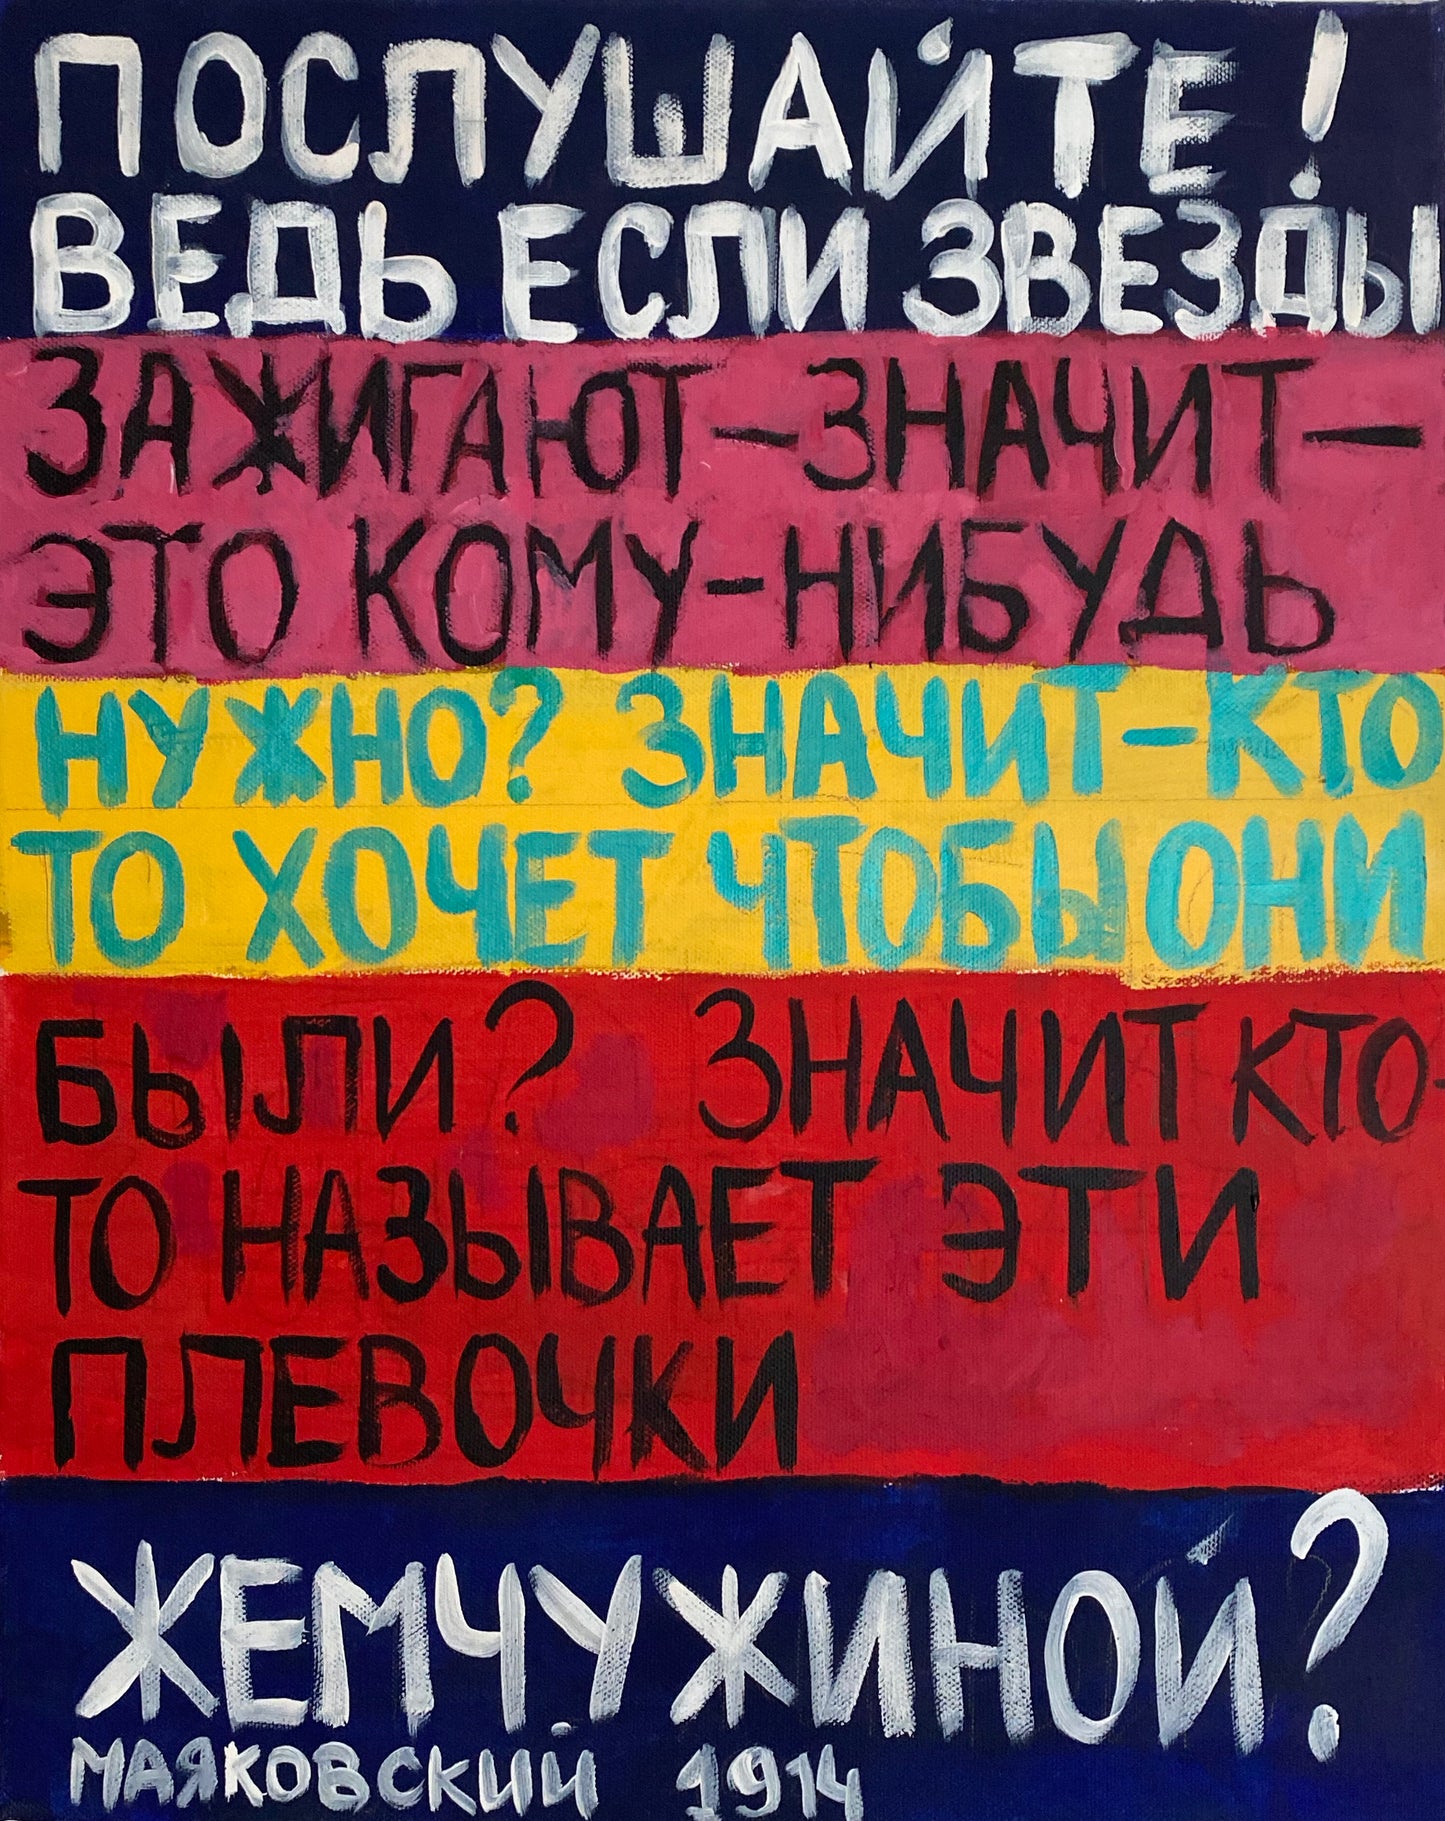 ПОСЛУШАЙТЕ!
ВЕДЬ ЕСЛИ ЗВЕЗДЫ
ЗАЖИГАЮТ-ЗНАЧИТ-
ЭТО КОМУ-НИБУДЬ
НУЖНО? ЗНАЧИТ-КТО
ТО ХОЧЕТ ЧТОБЫ ОНИ
БЫЛИ? ЗНАЧИТ КТО-
ТО НАЗЫВАЕТ ЭТИ
ПЛЕВОЧКИ
ЖЕМЧУЖИНОЙ?
МАЯКОВСКИЙ 1914